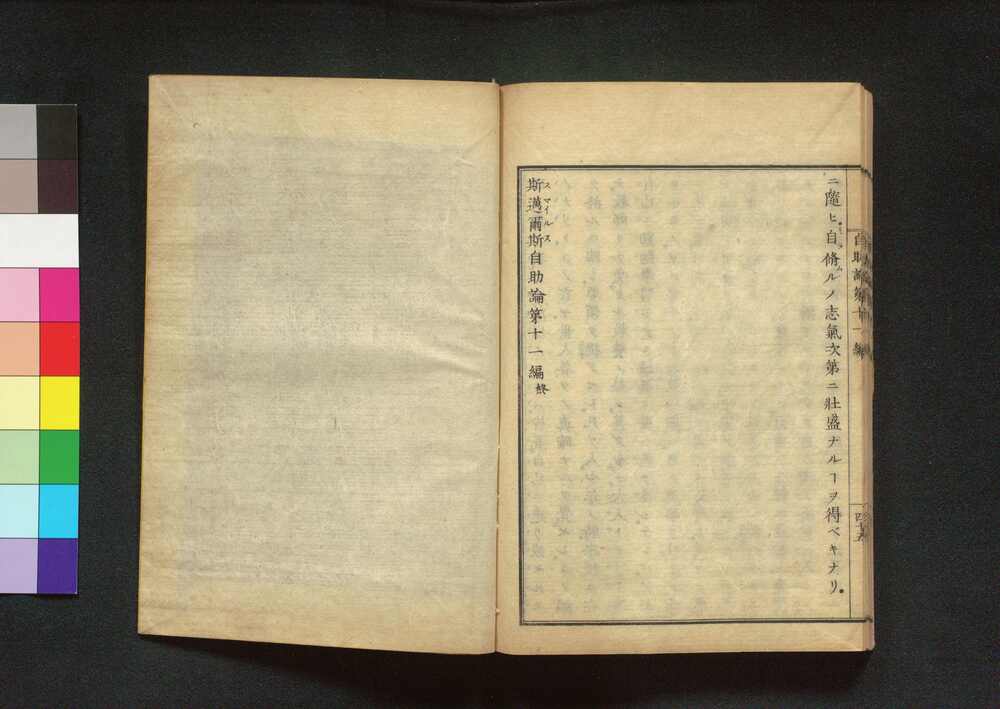 ニ隨ヒ自ラ脩ムルノ志氣次第ニ壯盛ナルヿヲ得ベキナリ。
斯邁爾斯自助論第十一編終
スマイルス
自助論第十一編
四十五